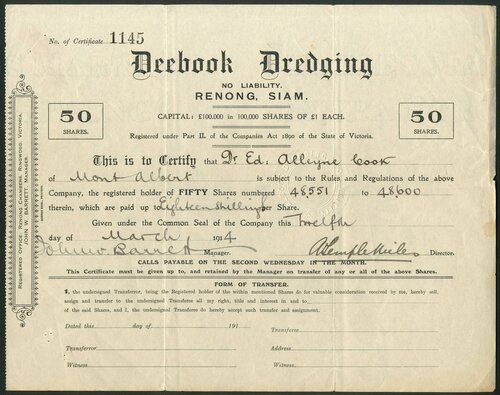 No. of Certificate 1145
Deebook Dredging
NO LIABILITY.
RENONG, SIAM.
50
SHARES.
CAPITAL: £100,000 in 100,000 SHARES OF £1 EACH.
50
SHARES.
Registered under Part II. of the Companies Act 1890 of the State of Victoria.
This is to Certify that Dr Ed: Alleyne Cook
of Mont Albert is subject to the Rules and Regulations of the above
Company, the registered holder of FIFTY Shares numbered 48,551 to 48,600
therein, which are paid up to Eighteen shillings per Share.
Given under the Common Seal of the Company this Twelfth
day of March, 1914
John W Barrett Manager. Director.
CALLS PAYABLE ON THE SECOND WEDNESDAY IN THE MONTH.
This Certificate must be given up to, and retained by the Manager on transfer of any or all of the above Shares.
FORM OF TRANSFER.
I, the undersigned Transferror, being the Registered holder of the within mentioned Shares do for valuable consideration received by me, hereby sell,
assign and transfer to the undersigned Transferee all my right, title and interest in and to
of the said Shares, and I, the undersigned Transferee do hereby accept such transfer and assignment.
Dated this day of 191
Transferee
Transferror
Address
Witness
Witness
REGISTERED OFFICE: RENONG CHAMBERS, RINGWOOD, VICTORIA.
JOHN W. BARRETT, MANAGER.